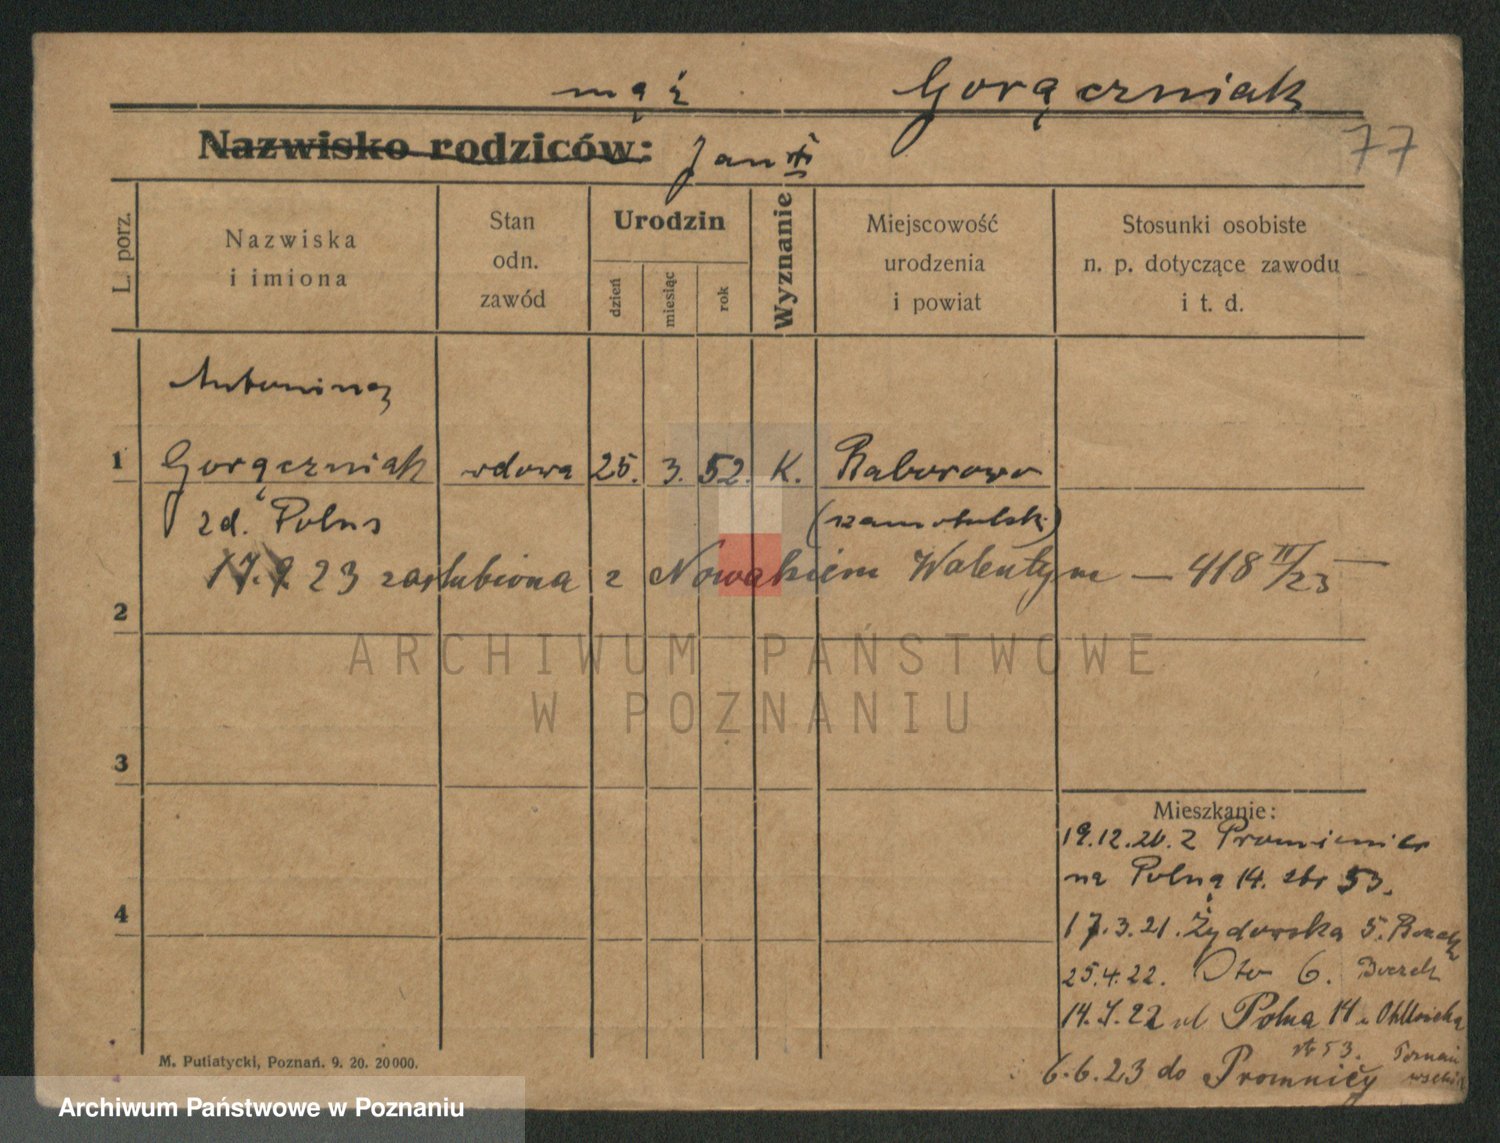 mąż Gorączniak
77
Nazwisko rodziców: Jan †
L. porz.
Nazwiska i imiona
Stan odn. zawód
Urodzin
dzień
miesiąc
rok
Wyznanie
Miejscowość urodzenia i powiat
Stosunki osobiste n. p. dotyczące zawodu i t. d.
Antonina
1 Gorączniak wdowa 25. 3. 52. K. Baborowo
zd. Polus (szamotulski)
23 zaślubiona z Nowakiem Walentym — 418 III/23 —
2
ARCHIWUM PAŃSTWOWE
W POZNANIU
3
Mieszkanie:
19.12.20. z
na Polną 14. 53.
4
17.3.21. Żydowska 5.
25.4.22. 6.
14.7.22 ul Polna 14
53.
6.6.23 do Promnicy
M. Putiatycki, Poznań. 9. 20. 20000.
Archiwum Państwowe w Poznaniu